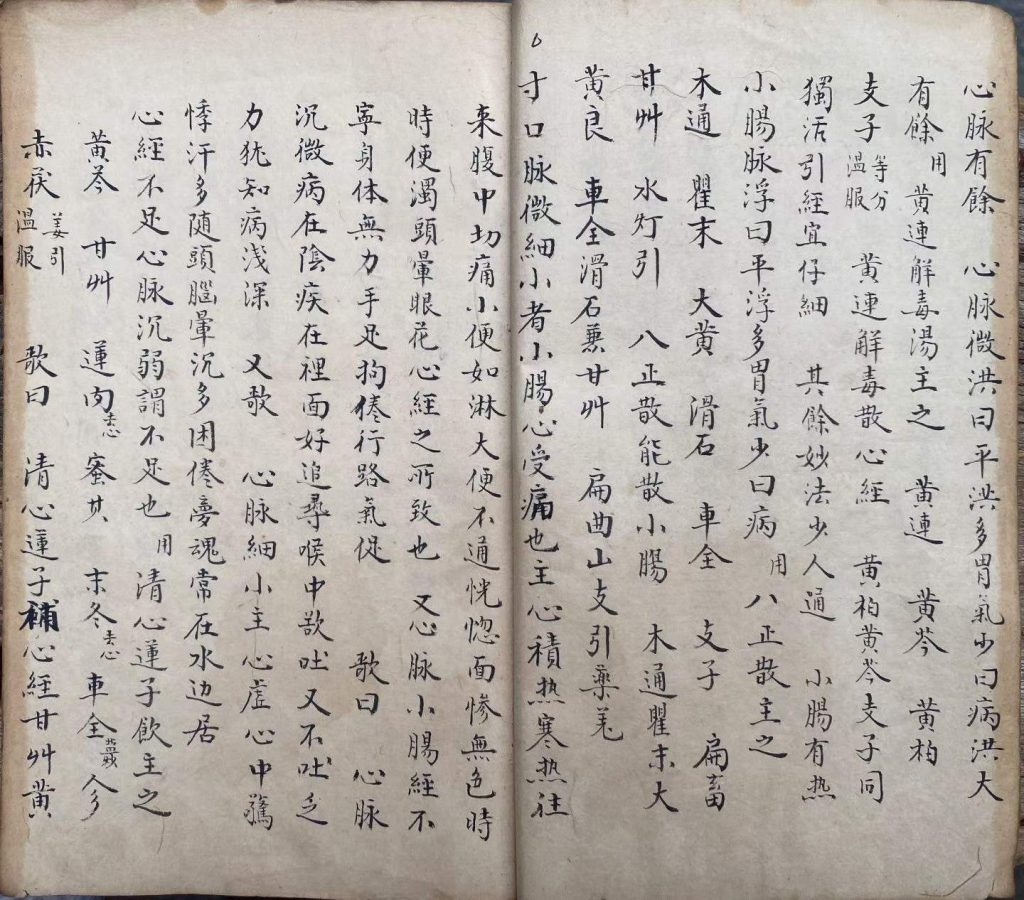 心脉有餘　心脉微洪曰平洪多胃氣少曰病洪大
有餘用黄連解毒湯主之　黄連　黄芩　黄柏
支子等分温服　黄連解毒散心經　黄柏黄芩支子同
獨活引經宜仔細　其餘妙法少人通　小腸有热
小腸脉浮曰平浮多胃氣少曰病　用八正散主之
木通　瞿末　大黄　滑石　車全　支子　扁畜
甘艸　水灯引　八正散能散小腸　木通瞿末大
黄良　車全滑石兼甘艸　扁曲山支引藥羌
寸口脉微细小者小腸心受痛也主心積热寒热往
来腹中切痛小便如淋大便不通恍惚面惨無色時
時便濁頭暈眼花心經之所致也　又心脉小腸經不
寧身体無力手足拘倦行路氣促　歌曰　心脉
沉微病在陰疾在裡面好追尋喉中欲吐又不吐乏
力犹知病浅深　又歌　心脉細小主心虚心中驚
悸汗多随頭腦暈沉多困倦夢魂常在水边居
心經不足心脉沉弱謂不足也　用清心蓮子飲主之
黄芩　甘艸　蓮肉去心　蜜其　末冬去心　車全　參
赤茯姜引温服　歌曰　清心蓮子補心經甘艸黄